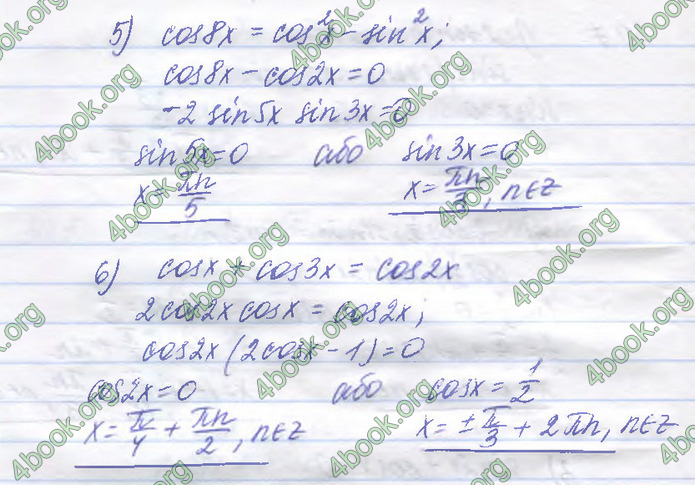 5) cos8x = cos²x - sin²x;
cos8x - cos2x = 0
-2 sin5x sin3x = 0
sin5x = 0 або sin3x = 0
x = πn/5 x = πn/3, n∈Z
6) cosx + cos3x = cos2x
2cos2x cosx = cos2x;
cos2x (2cosx - 1) = 0
cos2x = 0 або cosx = 1/2
x = π/4 + πn/2, n∈Z x = ±π/3 + 2πn, n∈Z
4book.org